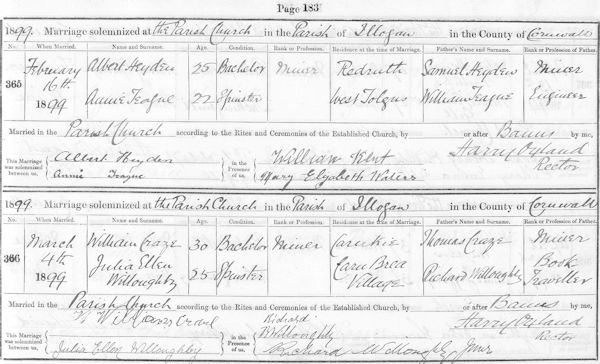 Page 183
1899. Marriage solemnized at the Parish Church in the Parish of Illogan in the County of Cornwall
No. When Married. Name and Surname. Age. Condition. Rank or Profession. Residence at the time of Marriage. Father's Name and Surname. Rank or Profession of Father.
365 February 16th 1899 Albert Heyden 25 Bachelor Miner Redruth Samuel Heyden Miner
Annie Teague 22 Spinster West Tolgus William Teague Engineer
Married in the Parish Church according to the Rites and Ceremonies of the Established Church, by or after Banns by me,
This Marriage was solemnized between us, Albert Heyden
Annie Teague
in the Presence of us, William
Mary Elizabeth
Harry Oxland
Rector
1899. Marriage solemnized at the Parish Church in the Parish of Illogan in the County of Cornwall
No. When Married. Name and Surname. Age. Condition. Rank or Profession. Residence at the time of Marriage. Father's Name and Surname. Rank or Profession of Father.
366 March 4th 1899 William Craze 30 Bachelor Miner Carnkie Thomas Craze Miner
Julia Ellen Willoughby 25 Spinster Carn Brea Village Richard Willoughby Book Traveller
Married in the Parish Church according to the Rites and Ceremonies of the Established Church, by or after Banns by me,
This Marriage was solemnized between us, William
Julia Ellen Willoughby
in the Presence of us, Richard Willoughby
Richard Willoughby Junr
Harry Oxland
Rector